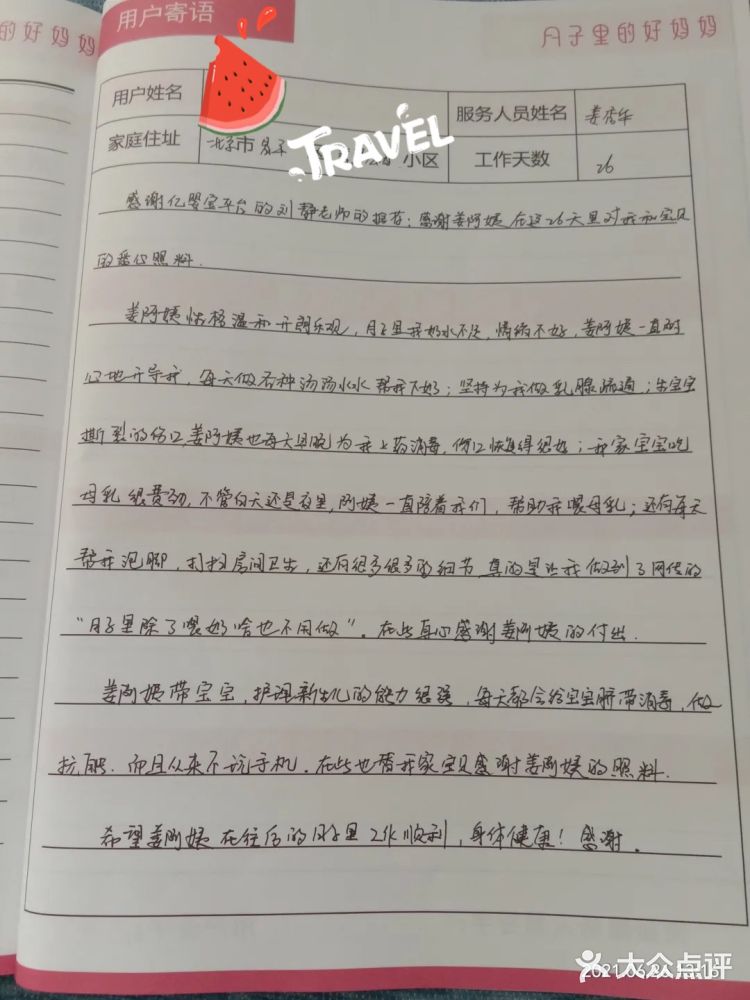 的好妈妈
用户寄语
月子里的好妈妈
TRAVEL
用户姓名
服务人员姓名
家庭住址 北京市 小区
工作天数 26
感谢亿婴宝平台的刘静老师的推荐;感谢姜阿姨在这26天里对我和宝贝
的悉心照料.
姜阿姨性格温和开朗乐观,月子里我奶水不足,情绪不好,姜阿姨一直耐
心地开导我,每天做各种汤汤水水帮我下奶;坚持为我做乳腺疏通;生宝宝
撕裂的伤口,姜阿姨也每天早晚为我上药消毒,伤口恢复得很好;我家宝宝吃
母乳很费劲,不管白天还是夜里,阿姨一直陪着我们,帮助我喂母乳;还有每天
帮我泡脚,打扫房间卫生,还有很多很多的细节 真的是让我做到了网传的
“月子里除了喂奶啥也不用做”.在此真心感谢姜阿姨的付出.
姜阿姨带宝宝,护理新生儿的能力很强,每天都会给宝宝脐带消毒,做
抚触.而且从来不玩手机.在此也替我家宝贝感谢姜阿姨的照料.
希望姜阿姨在往后的月子里工作顺利,身体健康!感谢.
大众点评